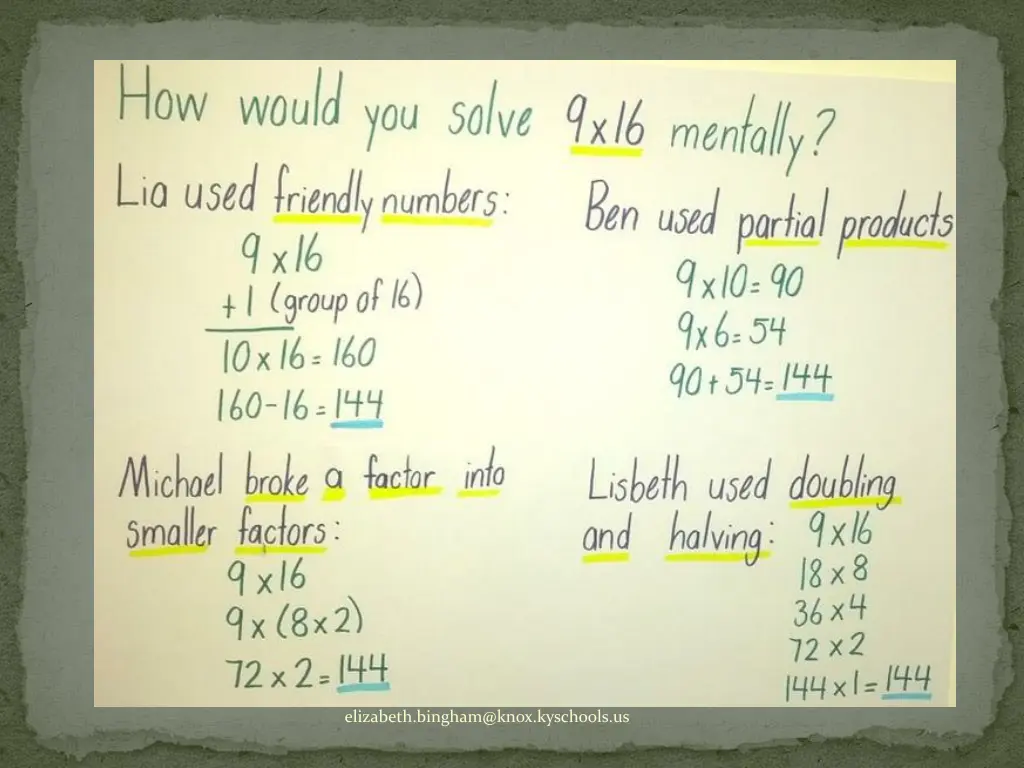 How would you solve 9x16 mentally?
Lia used friendly numbers:
9 x 16
+ 1 (group of 16)
10 x 16 = 160
160 - 16 = 144
Ben used partial products
9 x 10 = 90
9 x 6 = 54
90 + 54 = 144
Michael broke a factor into
smaller factors:
9 x 16
9 x (8 x 2)
72 x 2 = 144
Lisbeth used doubling
and halving: 9 x 16
18 x 8
36 x 4
72 x 2
144 x 1 = 144
elizabeth.bingham@knox.kyschools.us